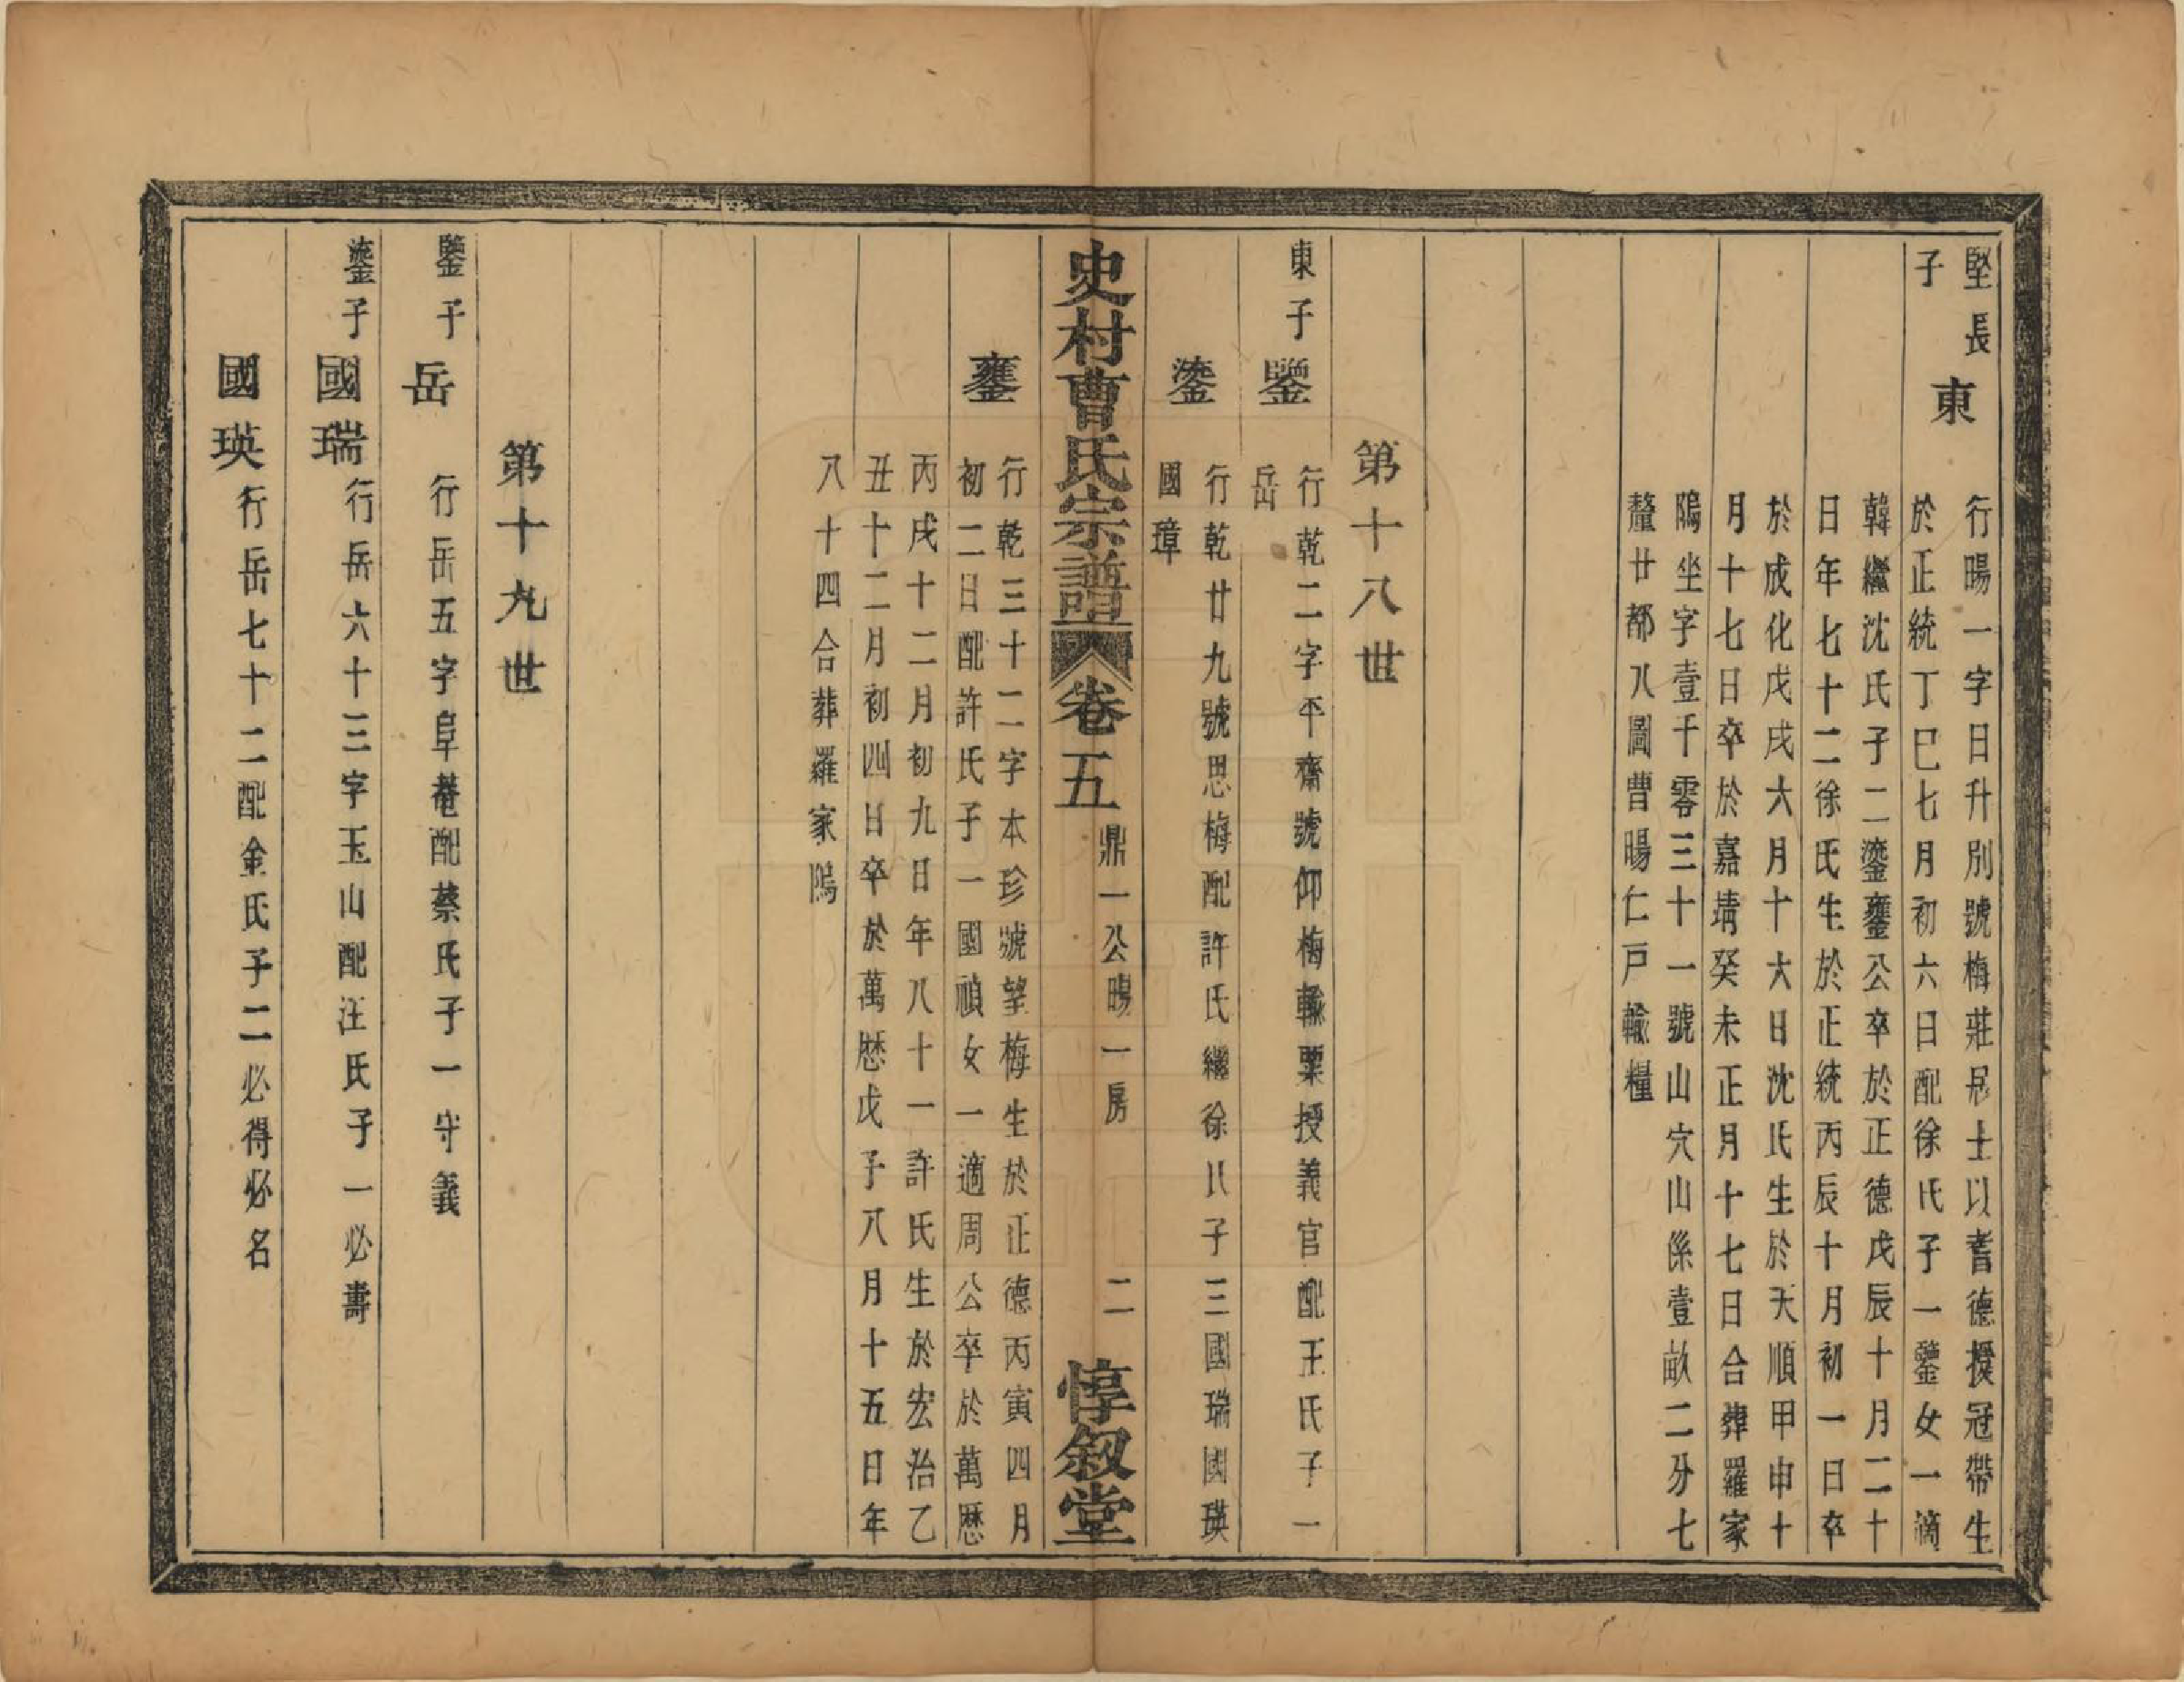 堅長子
東
行暘一字日升別號梅莊居士以耆德授冠帶生
於正統丁巳七月初六日配徐氏子一鑒女一適
韓繼沈氏子二鎏鏊公卒於正德戊辰十月二十
日年七十二徐氏生於正統丙辰十月初一日卒
於成化戊戌六月十六日沈氏生於天順甲申十
月十七日卒於嘉靖癸未正月十七日合葬羅家
塢坐字壹千零三十一號山穴山係壹畝二分七
釐廿都八圖曹暘仁戸輸糧
第十八世
東子
鑒
行乾二字平齋號仰梅輸粟授義官配王氏子一
岳
鎏
行乾廿九號思梅配許氏繼徐氏子三國瑞國瑛
國璋
史村曹氏宗譜
卷五
鼎一公暘一房
二
惇叙堂
行乾三十二字本珍號望梅生於正德丙寅四月
初二日配許氏子一國禎女一適周公卒於萬歷
丙戌十二月初九日年八十一許氏生於宏治乙
丑十二月初四日卒於萬歷戊子八月十五日年
八十四合葬羅家塢
第十九世
鑒子
岳
行岳五字阜菴配蔡氏子一守義
鎏子
國瑞
行岳六十三字玉山配汪氏子一必壽
國瑛
行岳七十二配金氏子二必得必名